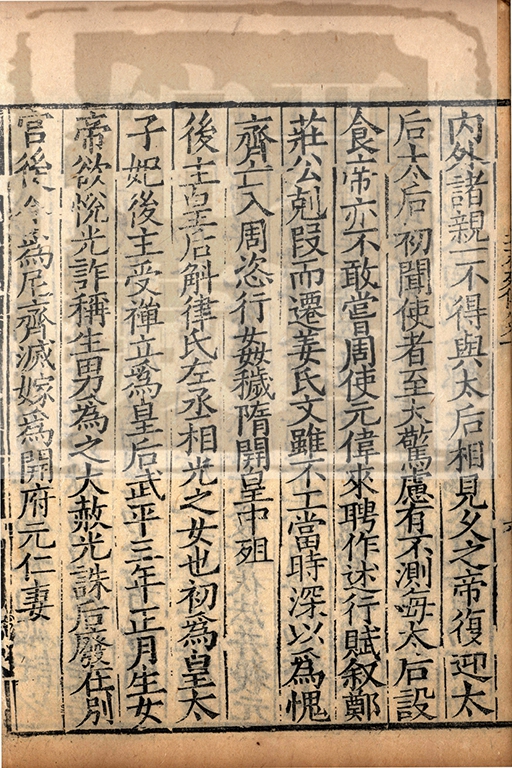 内外諸親一不得與太后相見久之帝復迎太
后太后初聞使者至大驚慮有不測每太后設
食帝亦不敢嘗周使元偉來聘作述行賦叙鄭
莊公剋段而遷姜氏文雖不工當時深以爲愧
齊亡入周恣行姦穢隋開皇中殂
後主皇后斛律氏左丞相光之女也初爲皇太
子妃後主受禪立爲皇后武平三年正月生女
帝欲悅光詐稱生男爲之大赦光誅后廢在別
宫後令爲尼齊滅嫁爲開府元仁妻